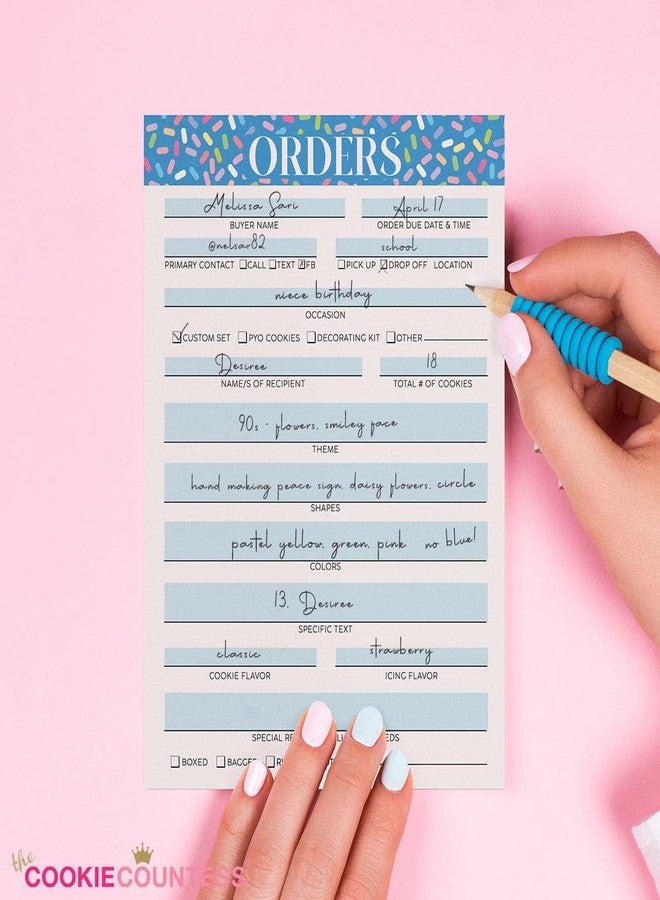 ORDERS
Melissa Sari April 17
BUYER NAME ORDER DUE DATE & TIME
@nelsar82 school
PRIMARY CONTACT CALL TEXT FB PICK UP DROP OFF LOCATION
niece birthday
OCCASION
CUSTOM SET PYO COOKIES DECORATING KIT OTHER
Desiree 18
NAME/S OF RECIPIENT TOTAL # OF COOKIES
90s - flowers, smiley face
THEME
hand making peace sign, daisy flowers, circle
SHAPES
pastel yellow, green, pink no blue!
COLORS
13, Desiree
SPECIFIC TEXT
classic strawberry
COOKIE FLAVOR ICING FLAVOR
SPECIAL
BOXED
the
COOKIECOUNTESS